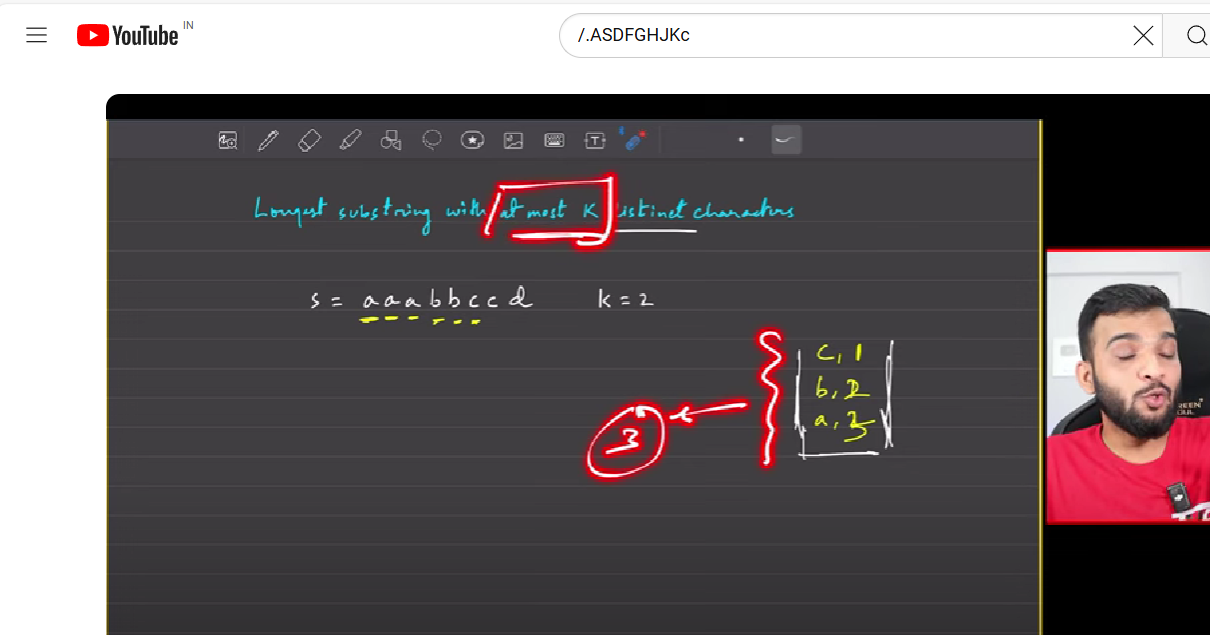 YouTube IN
/.ASDFGHJKc
T
Longest substring with at most K distinct characters
S = a a a b b c c d K = 2
c, 1
b, 2
a, 3
3